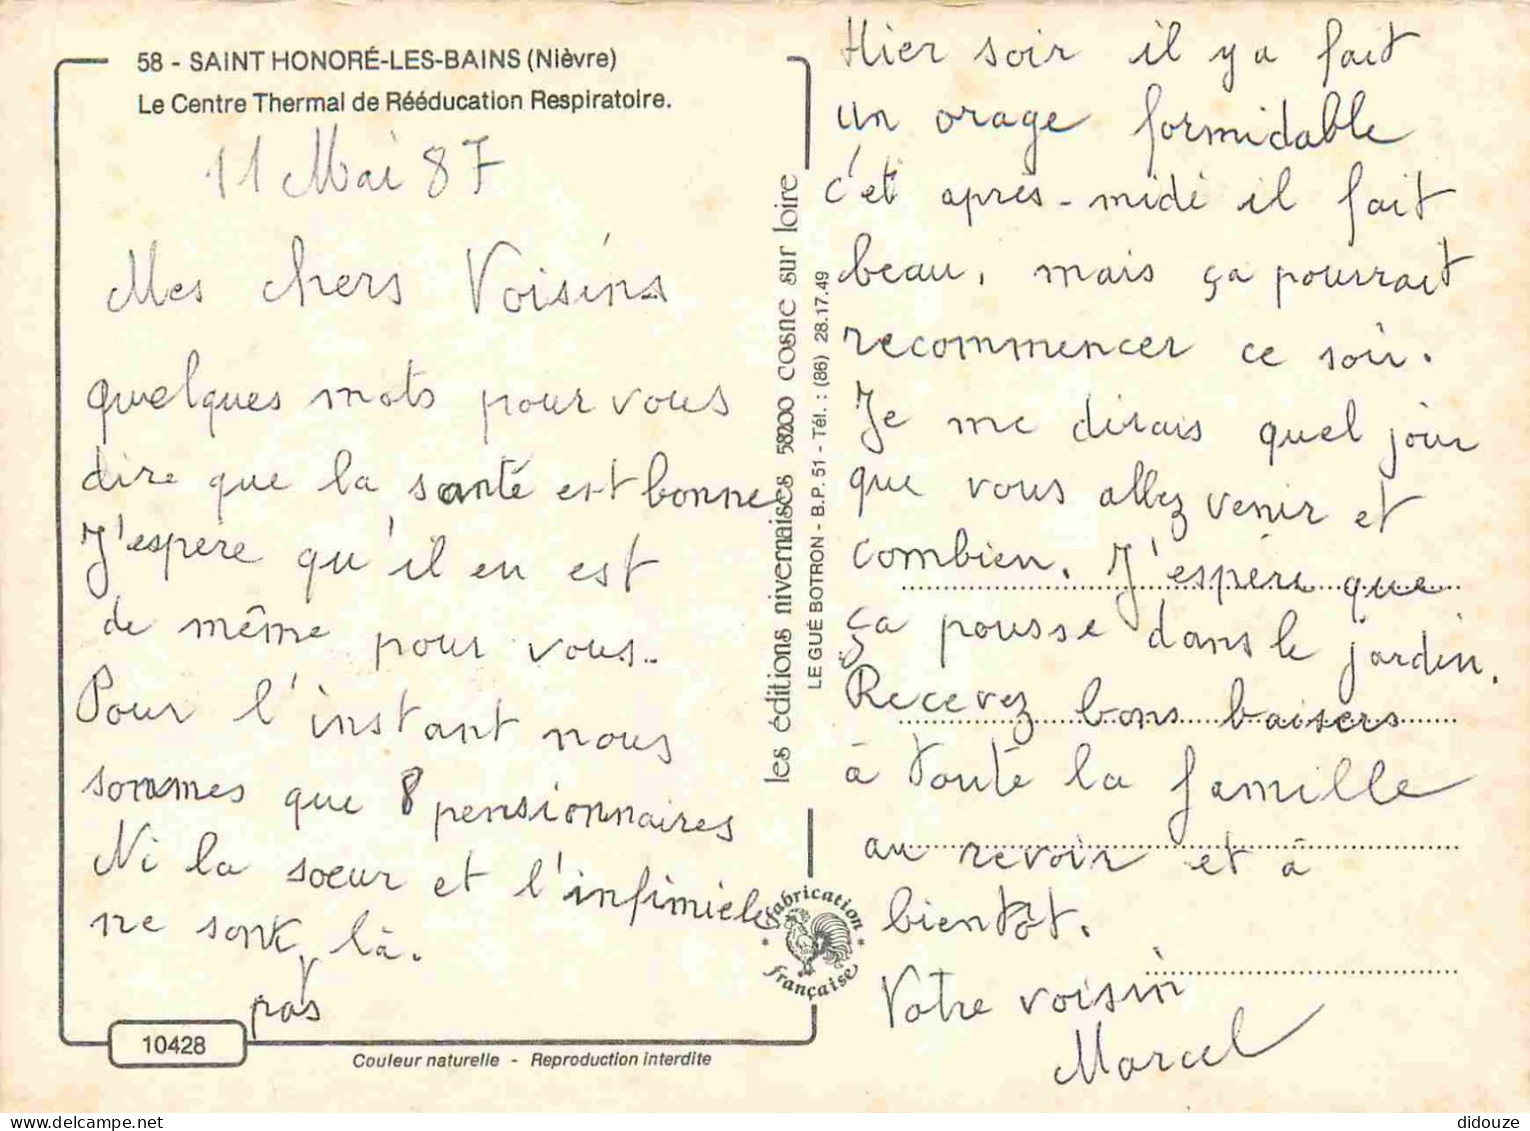 58 - SAINT HONORÉ-LES-BAINS (Nièvre)
Le Centre Thermal de Rééducation Respiratoire.
11 Mai 87
Mes chers Voisins
quelques mots pour vous
dire que la santé est bonne
J'espère qu'il en est
de même pour vous..
Pour l'instant nous
sommes que 8 pensionnaires
Ni la soeur et l'infimiele
ne sont là.
pas
10428
Couleur naturelle - Reproduction interdite
les éditions nivernaises 58200 cosne sur loire
LE GUÉ BOTRON - B.P. 51 - Tél. : (86) 28.17.49
fabrication française
Hier soir il y a fait
un orage formidable
c'et après-midi il fait
beau, mais ça pourrait
recommencer ce soir.
Je me dirais quel jour
que vous allez venir et
combien. J'espère que
ça pousse dans le jardin.
Recevez bons baisers
à touté la famille
au revoir et à
bientôt.
Votre voisin
Marcel
didouze